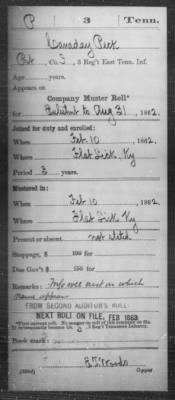 P 3 Tenn.
Canaday Peek
Pvt., Co. 3 Reg't East Tenn. Inf.
Age years.
Appears on
Company Muster Roll*
for Enlistmt to Aug 31, 1862.
Joined for duty and enrolled:
When Feb. 10, 1862.
Where Flat Lick, Ky
Period 3 years.
Mustered in:
When Feb 10, 1862.
Where Flat Lick, Ky
Present or absent not stated
Stoppage, $ 100 for
Due Gov't $ 100 for
Remarks: in which
name appears
FROM SECOND AUDITOR'S ROLL.
NEXT ROLL ON FILE, FEB 1863.
Book mark:
(358d) Copyist